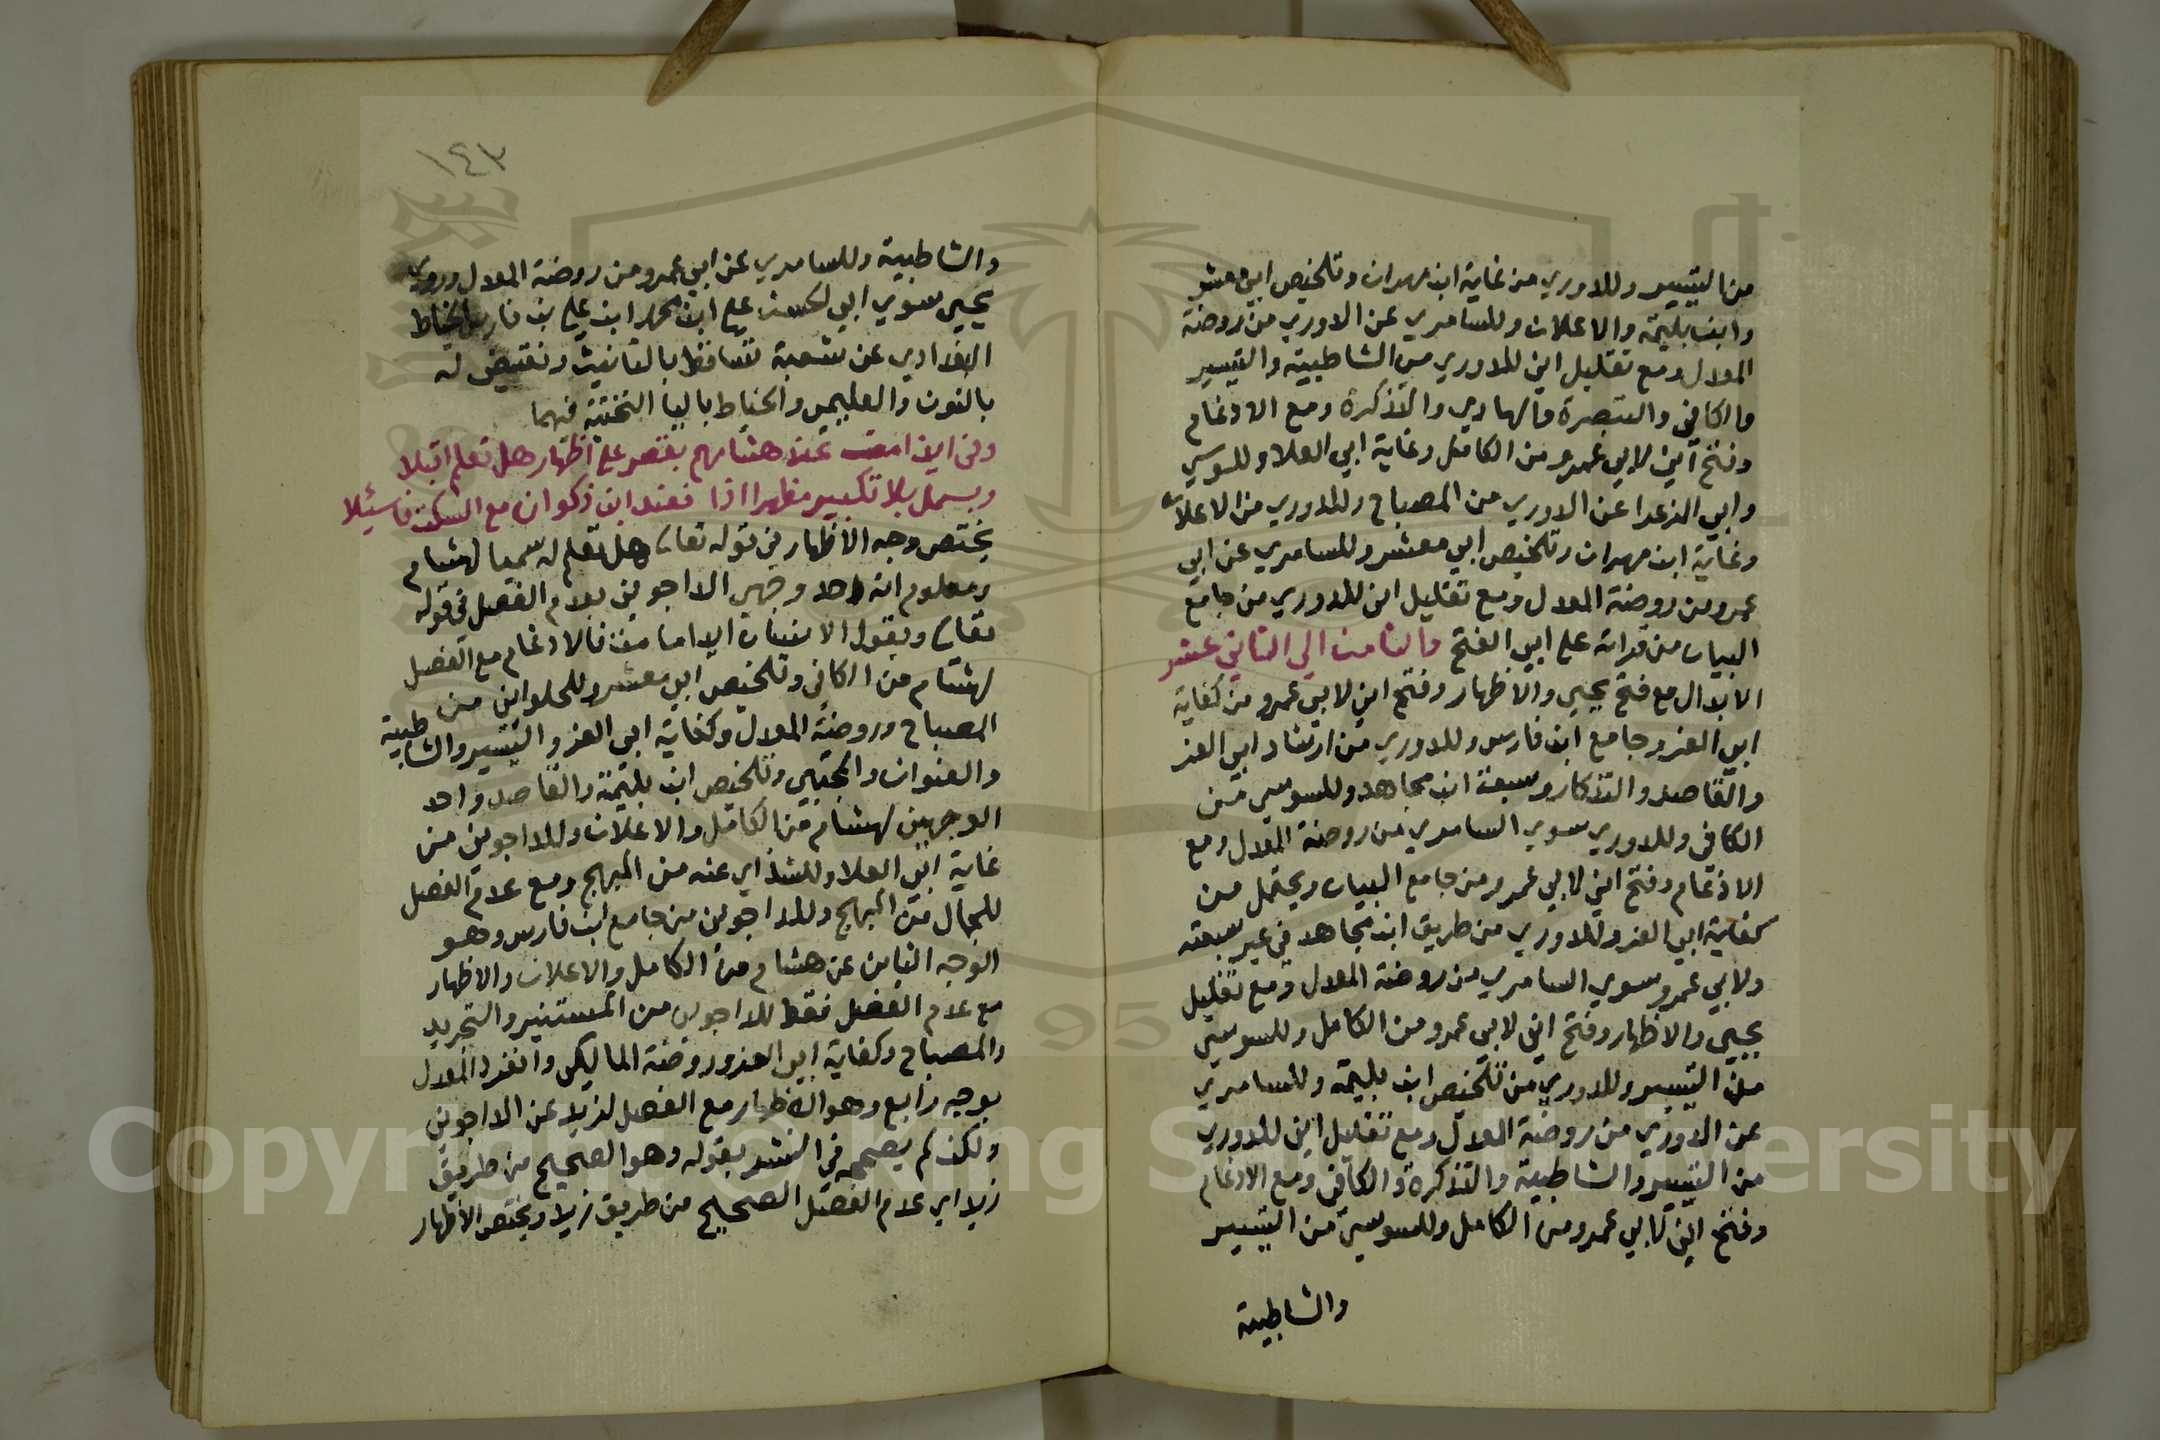 من التيسير وللدوري من غاية ابن مهران وتلخيص ابي معشر
وابن بليمة والاعلان وللسامري عن الدوري من روضة
المعدل ومع تقليل اني للدوري من الشاطبية والتيسير
والكافي والتبصرة والهادي والتذكرة ومع الادغام
وفتح اني لابي عمرو من الكامل وغاية ابي العلا وللسوسي
وابي الزعرا عن الدوري من المصباح وللدوري من الاعلان
وغاية ابن مهران وتلخيص ابي معشر وللسامري عن ابي
عمرو من روضة المعدل ومع تقليل اني للدوري من جامع
البيان من قراته علي ابي الفتح والثامن الي الثاني عشر
الابدال مع فتح يحيي والاظهار وفتح اني لابي عمرو من كفاية
ابي العز وجامع ابن فارس وللدوري من ارشاد ابي العز
والقاصد والتذكار وسبعة ابن مجاهد وللسوسي من
الكافي وللدوري سوي السامري من روضة المعدل ومع
الادغام وفتح اني لابي عمرو من جامع البيان ويحتمل من
كفاية ابي العز وللدوري من طريق ابن مجاهد في غير سبعته
ولابي عمرو سوي السامري من روضة المعدل ومع تقليل
يحيي والاظهار وفتح اني لابي عمرو من الكامل وللسوسي
من التيسير وللدوري من تلخيص ابن بليمة وللسامري
عن الدوري من روضة المعدل ومع تقليل اني للدوري
من التيسير والشاطبية والتذكرة والكافي ومع الادغام
وفتح اني لابي عمرو من الكامل وللسوسي من التيسير
والشاطبية
١٤٣
والشاطبية وللسامري عن ابي عمرو من روضة المعدل وروي
يحيي سوي ابي الحسن علي ابن محمد ابن علي بن فارس الخياط
البغدادي عن شعبة تساقط بالتانيث ونقيض له
بالنون والعليمي والخياط باليا التحتية فيهما
وفي ايذا مت عند هشامهم بقصر علي اظهار هل تعلم اقبلا
وبسمل بلا تكبير مظهرا اذا فعند ابن ذكوان مع السكت فاسئلا
يختص وجه الاظهار في قوله تعالي هل تعلم له سميا لهشام
ومعلوم انه احد وجهي الداجوني بعدم الفصل في قوله
تعالي ويقول الانسان ايذا ما مت فالادغام مع الفصل
لهشام من الكافي وتلخيص ابي معشر وللحلواني من
المصباح وروضة المعدل وكفاية ابي العز والتيسير والشاطبية
والعنوان والمجتبي وتلخيص ابن بليمة والقاصد واحد
الوجهين لهشام من الكامل والاعلان وللداجوني من
غاية ابي العلا وللشذاي عنه من المبهج ومع عدم الفصل
للجمال من المبهج وللداجوني من جامع ابن فارس وهو
الوجه الثاني عن هشام من الكامل والاعلان والاظهار
مع عدم الفصل فقط للداجوني من المستنير والتجريد
والمصباح وكفاية ابي العز وروضة المالكي وانفرد المعدل
بوجه رابع وهو الاظهار مع الفصل لزيد عن الداجوني
ولكن لم يصححه في النشر بقوله وهو الصحيح من طريق
زيد اي عدم الفصل الصحيح من طريق زيد ويختص الاظهار
Copyright © King Saud University